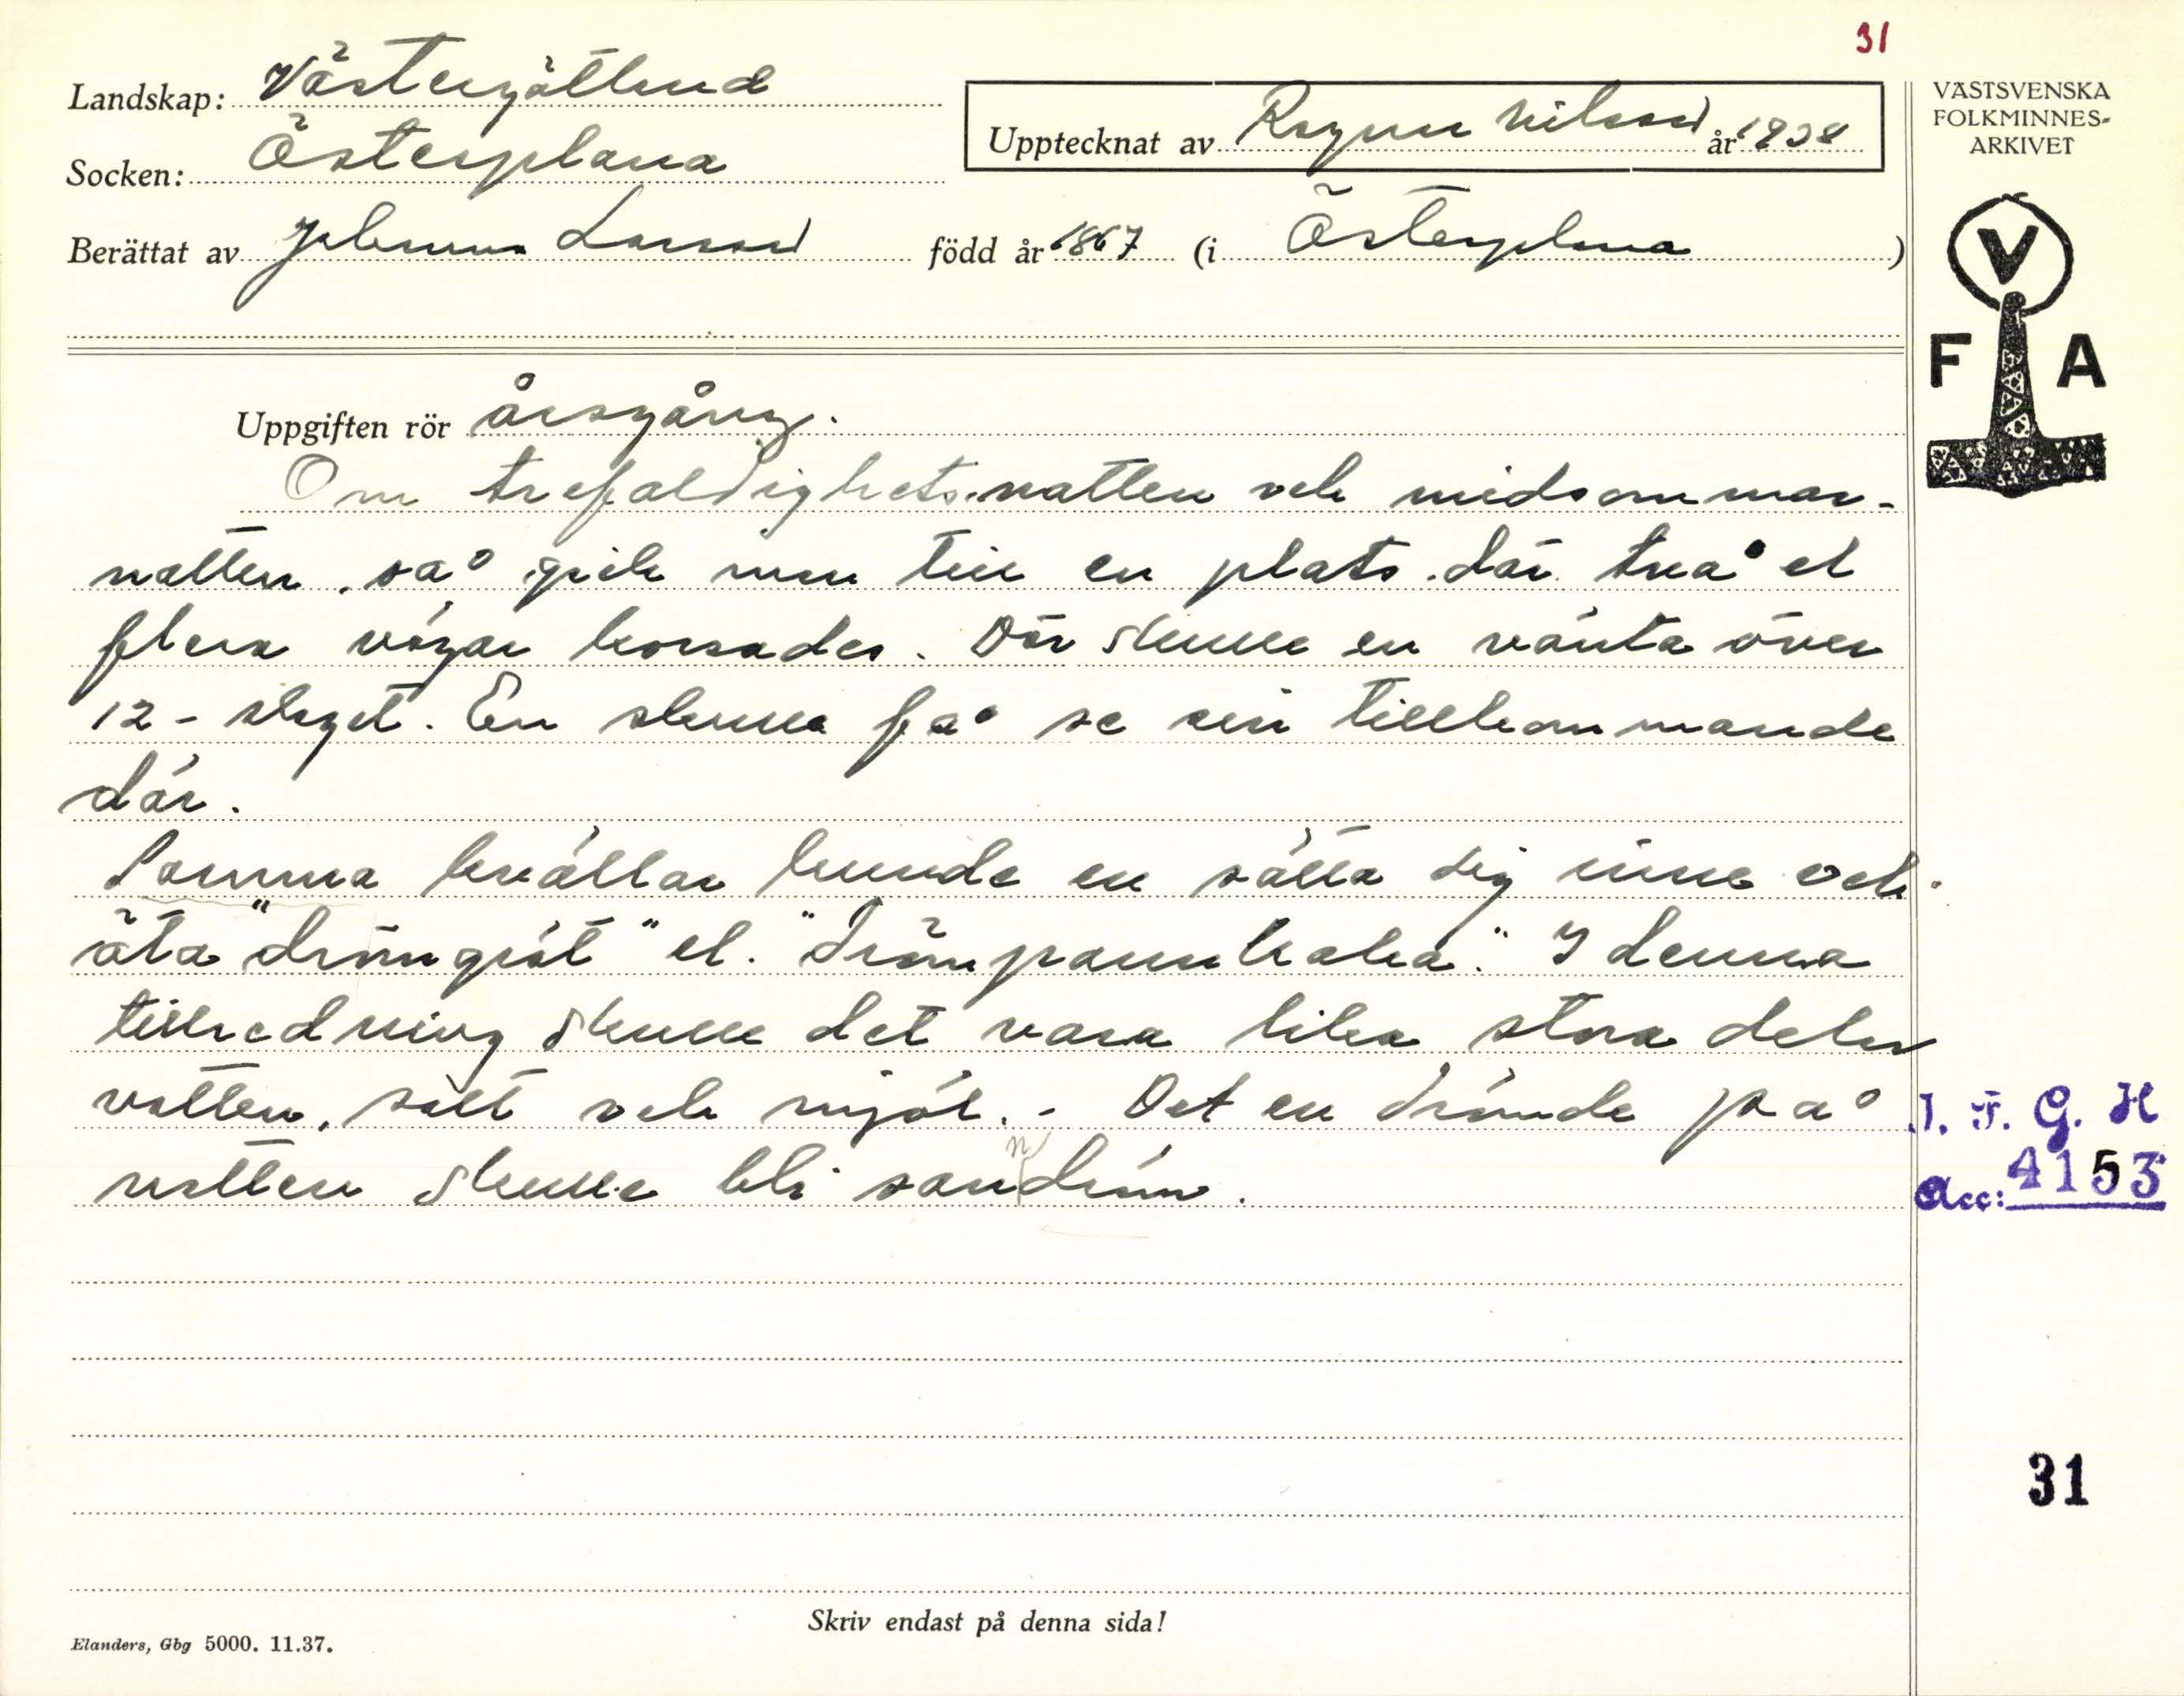 31
Landskap: Västergötland
Socken: Österplana
Upptecknat av Ragnar Nilsson år 1938
Berättat av Johannes Larsson född år 1867 (i Österplana)
VÄSTSVENSKA
FOLKMINNES-
ARKIVET
V
F A
Uppgiften rör årsgång.
Om trefaldighetsnatten och midsommar-
natten, så gick man till en plats där två el
flera vägar korsades. Där skulle en vänta över
12-slaget. En skulle få se sin tillkommande
där.
Samma kvällar kunde en sätta sig inne och
äta "drömgröt" el. "drömpannkaka". I denna
tillredning skulle det vara lika stora delar
vatten, salt och mjöl. - Det en drömde på
natten skulle bli sanndröm.
I. F. G. H
Acc: 4153
31
Skriv endast på denna sida!
Elanders, Gbg 5000. 11.37.